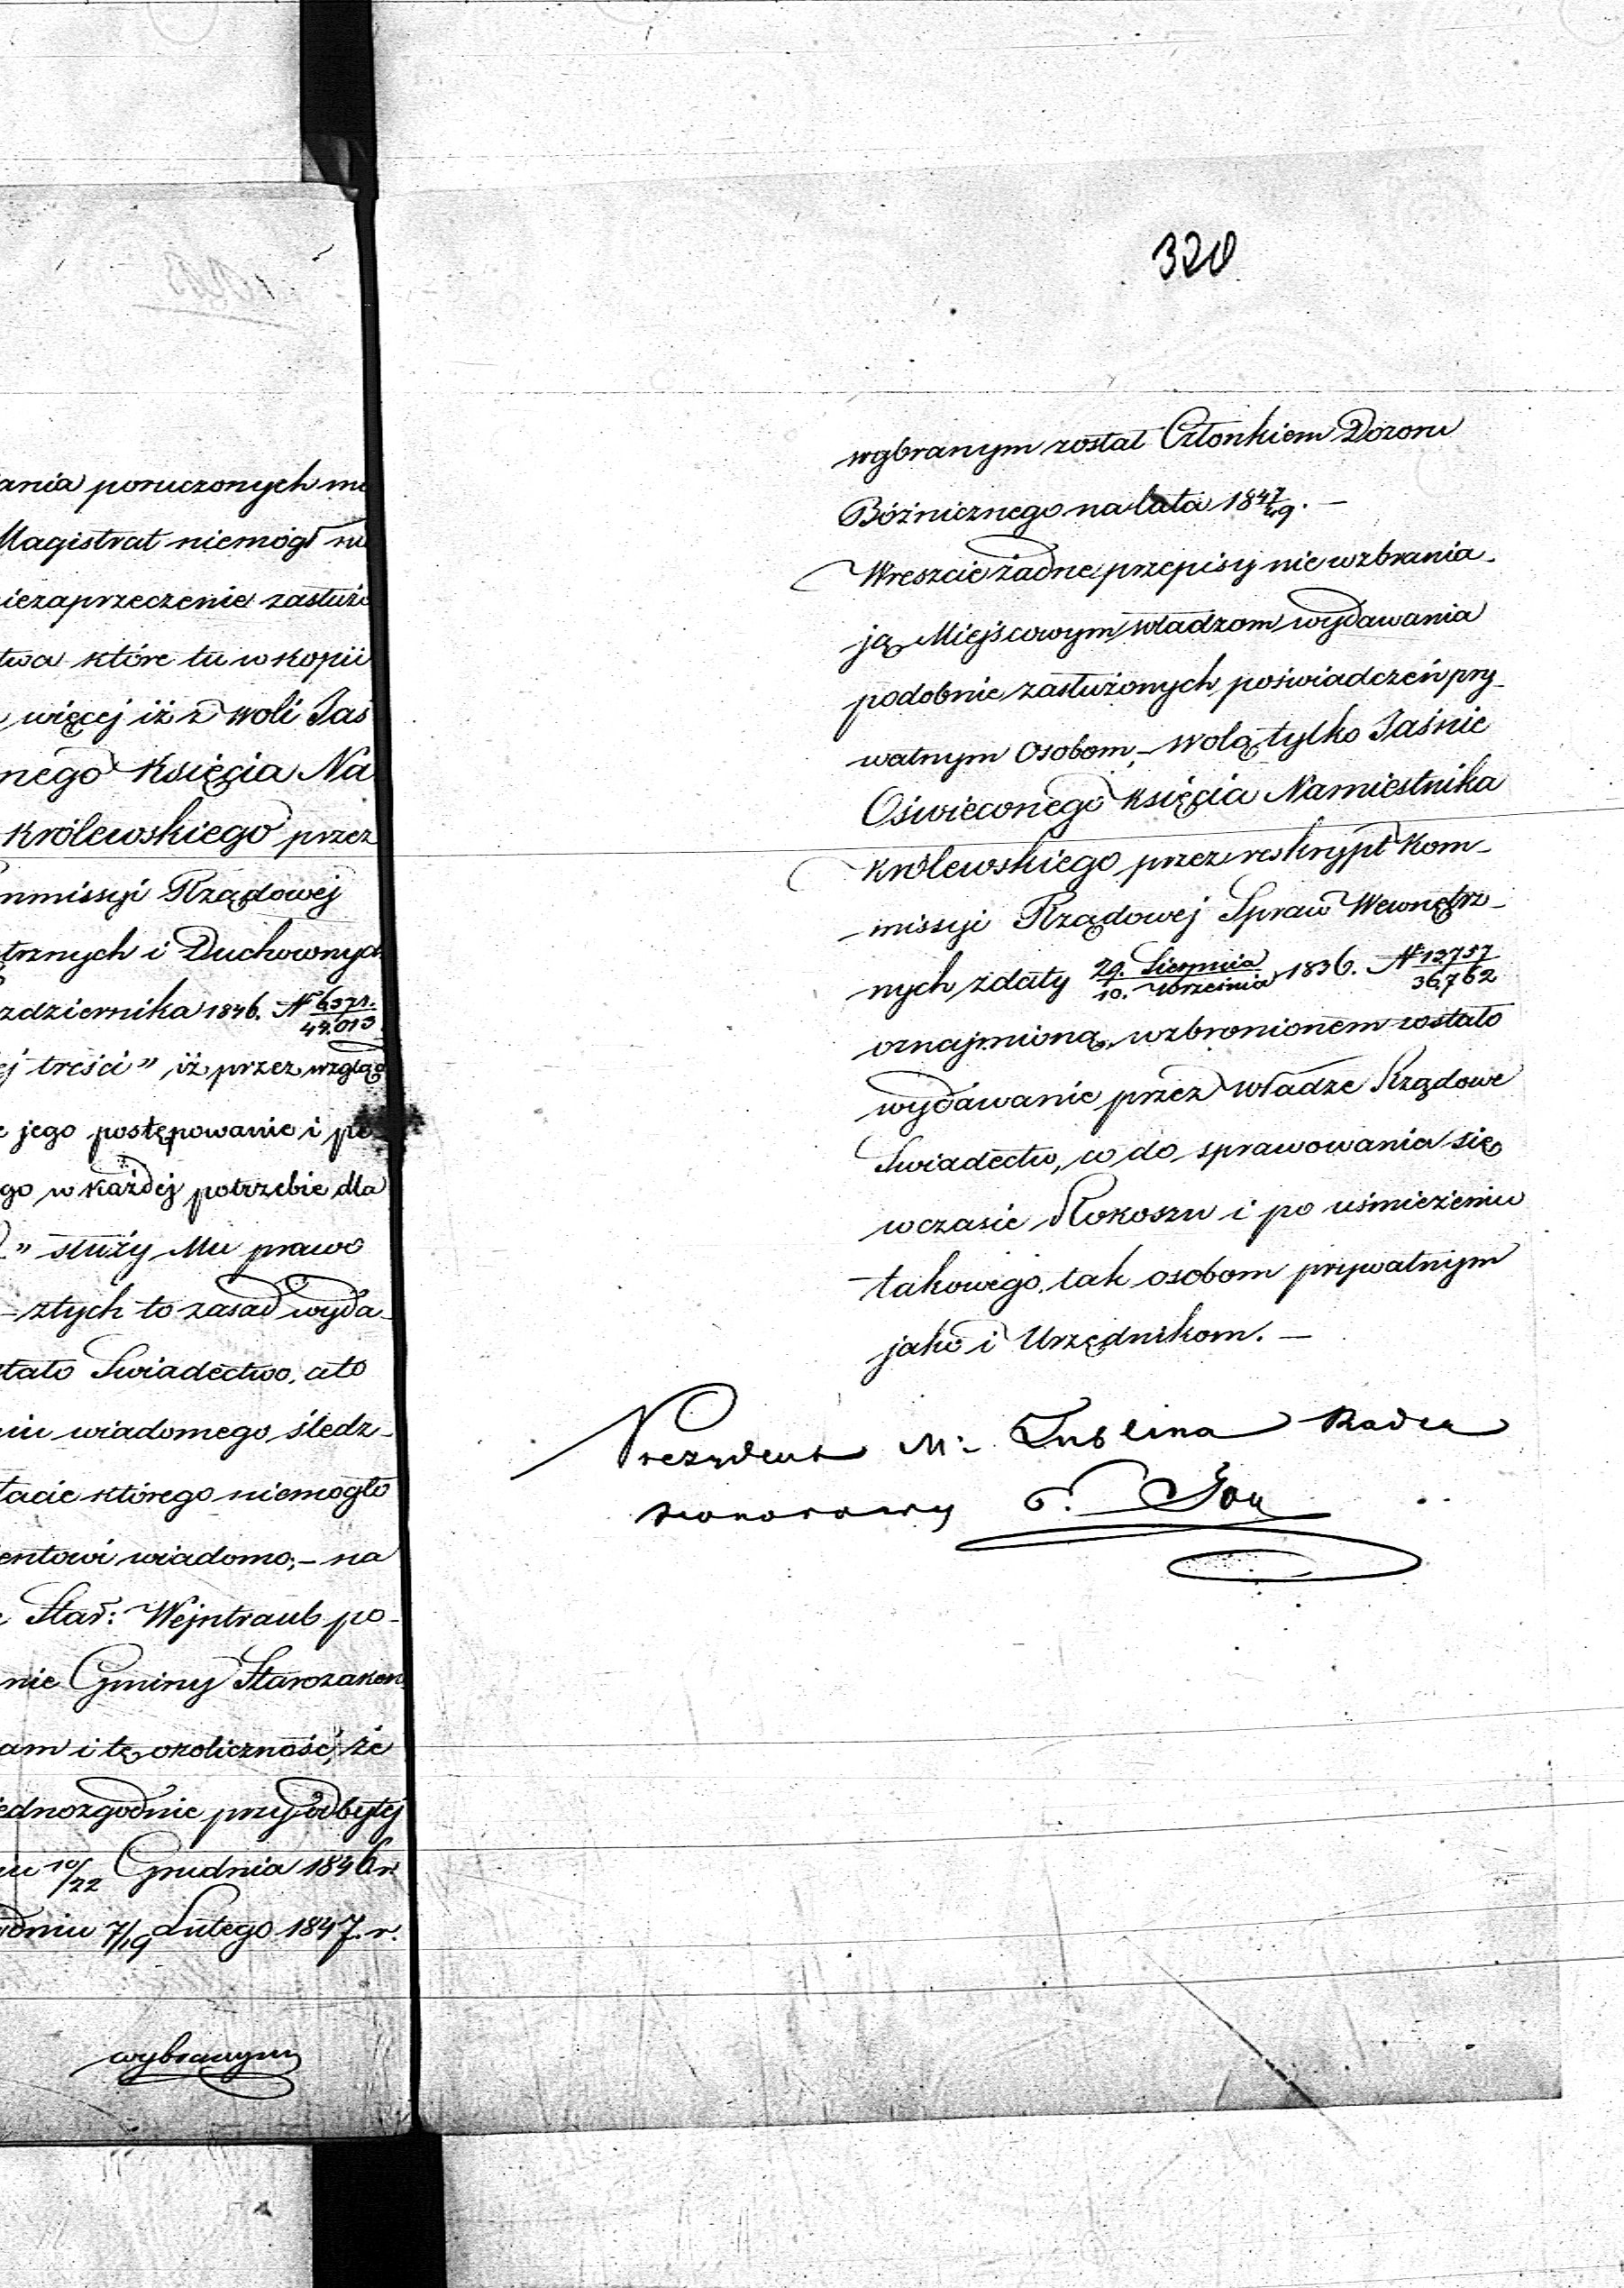 ania poruczonych mo
Magistrat niemógł ni
niezaprzeczenie zasłużo
twa które tu w kopii
więcej iż z woli Jaś
nego Księcia Na
Królewskiego przez
mmissyi Rządowej
trznych i Duchownych
zdziernika 1846. № 6371./44.013
ej treści" iż przez wzgląd
e jego postępowanie i po
go w każdej potrzebie dla
" służy Mu prawo
– ztych to zasad wyda-
tało Swiadectwo, a to
niu wiadomego śledz-
tacie którego niemogło
entowi wiadomo; – na
Star: Wejntraub po-
nie Gminy Starozakon
am i tę okoliczność, że
jednozgodnie przy odbytej
iu 10/22 Grudnia 1846 r.
dniu 7/19 Lutego 1847. r.
wybranym
320
wybranym został Członkiem Dozoru
Bóżnicznego na lata 1847/49. –
Wreszcie żadne przepisy nie wzbrania-
ją Miejscowym władzom wydawania
podobnie zasłużonych poświadczeń pry-
watnym Osobom, – wolą tylko Jaśnie
Oświeconego Księcia Namiestnika
Królewskiego przez reskrypt Kom-
missyi Rządowej Spraw Wewnętrz-
nych z daty 29. Sierpnia/10. Września 1836. № 12757/36,762
oznajmioną, wzbronionem zostało
wydawanie przez Władze Rządowe
Swiadectw, co do sprawowania się
w czasie Rokoszu i po uśmierzeniu
takowego, tak osobom prywatnym
jako i Urzędnikom. –
Prezydent M: Lublina Radca
Honorowy